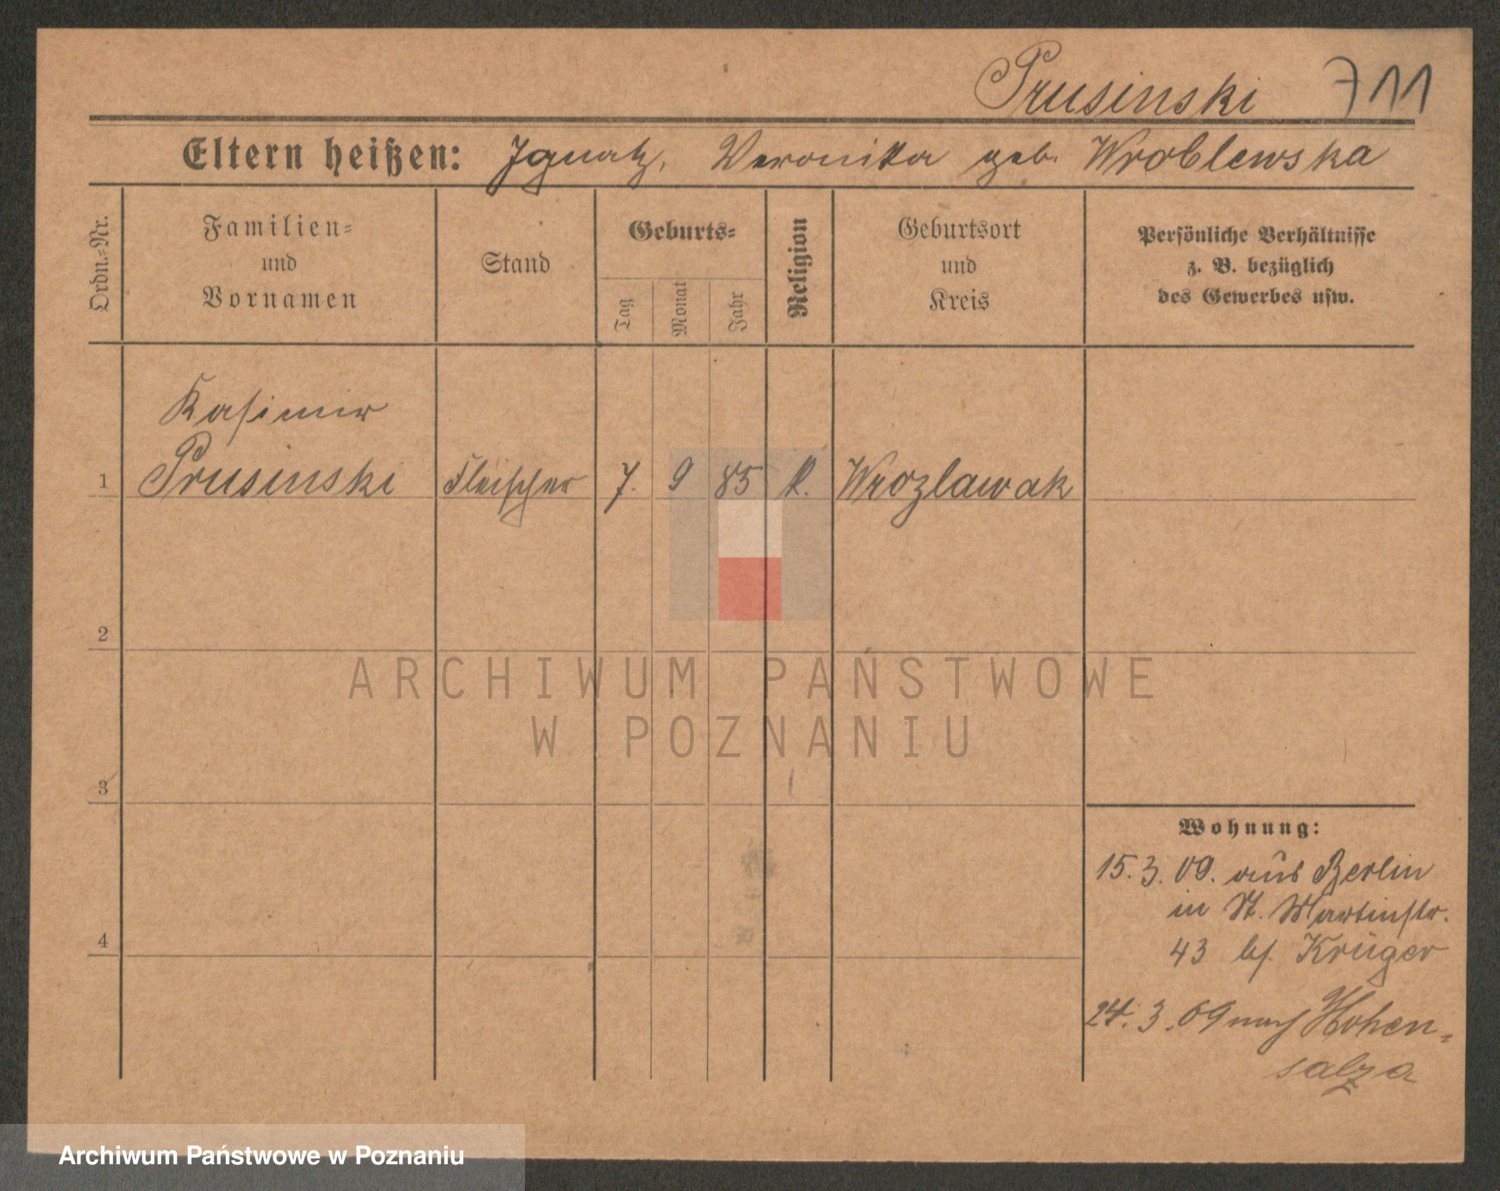 Prusinski 711
Eltern heißen: Ignatz, Veronika geb. Wroblewska
Ordn.-Nr.
Familien-
und
Vornamen
Stand
Geburts-
Tag
Monat
Jahr
Religion
Geburtsort
und
Kreis
Persönliche Verhältnisse
z. B. bezüglich
des Gewerbes usw.
Kasimir
1 Prusinski Fleischer 7. 9 85 k. Wrozlawak
2
ARCHIWUM PAŃSTWOWE
W POZNANIU
3
Wohnung:
15.3.09. aus Berlin
in St. Martinstr.
4
43 bs. Krüger
24.3.09 nach Hohen-
salza
Archiwum Państwowe w Poznaniu